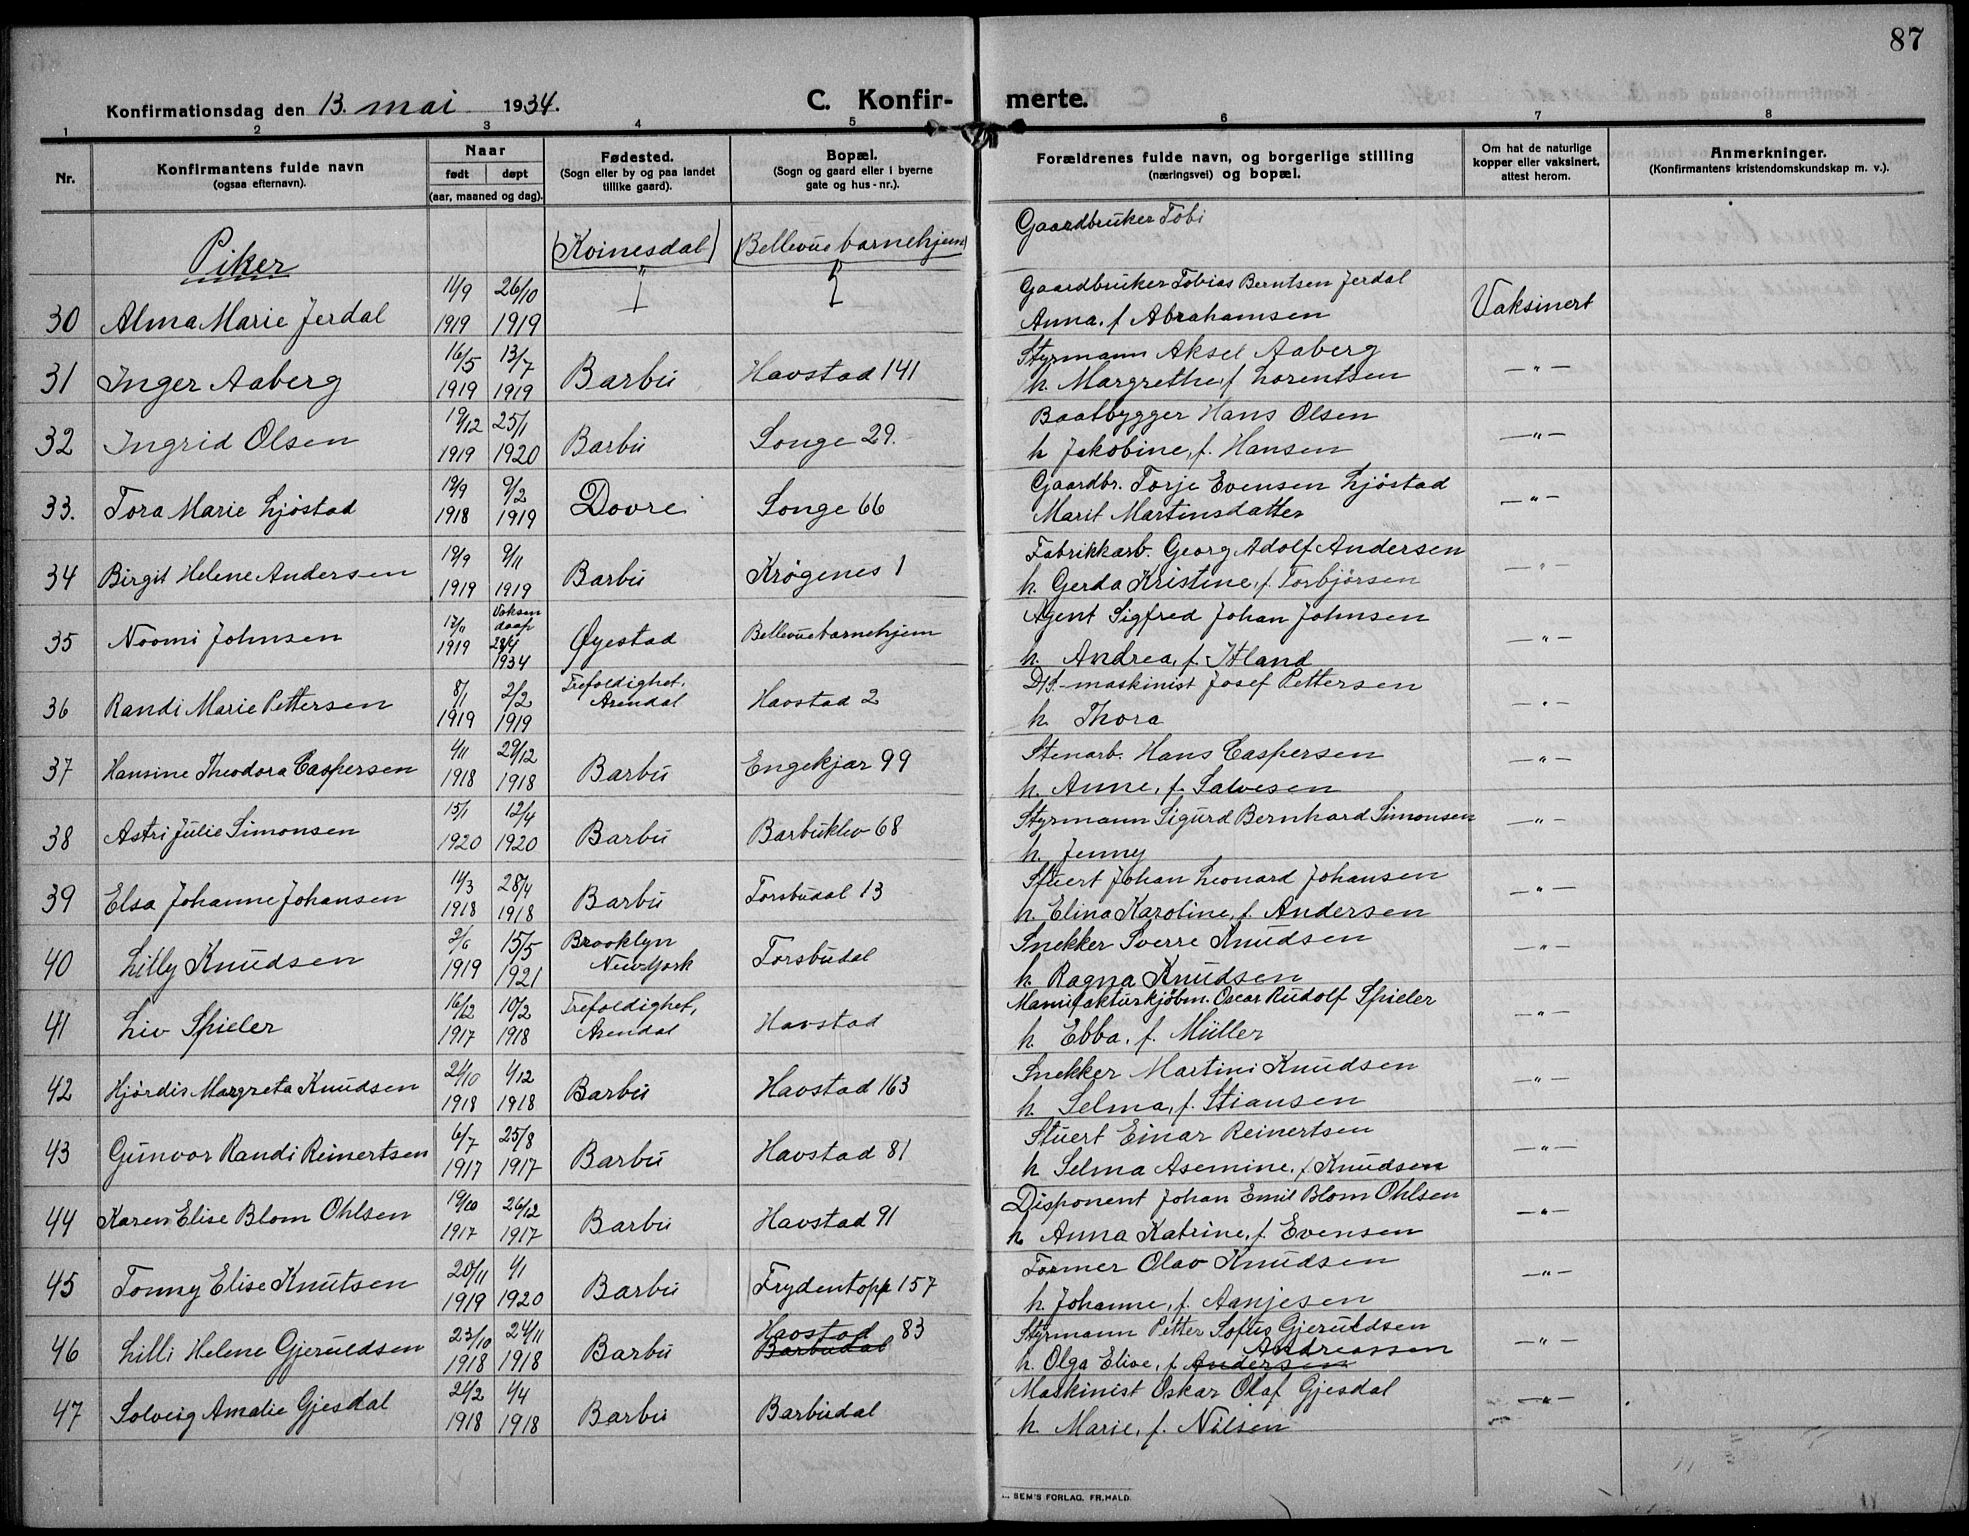 87
Konfirmationsdag den 13. mai 1934.
C. Konfir-
merte.
1 2 3 4 5 6 7 8
Nr.
Konfirmantens fulde navn
(ogsaa efternavn).
Naar
født døpt
(aar, maaned og dag).
Fødested.
(Sogn eller by og paa landet
tillike gaard).
Bopæl.
(Sogn og gaard eller i byerne
gate og hus-nr.).
Forældrenes fulde navn, og borgerlige stilling
(næringsvei) og bopæl.
Om hat de naturlige
kopper eller vaksinert,
attest herom.
Anmerkninger.
(Konfirmantens kristendomskundskap m. v.).
Piker
(Kvinesdal) (Bellevue barnehjem)
Gaardbruker Tobi
30 Alma Marie Jerdal 11/9 1919 26/10 1919 "
Gaardbruker Tobias Berntsen Jerdal
Anna, f. Abrahamsen
Vaksinert
31 Inger Aaberg 16/5 1919 13/7 1919 Barbu Havstad 141
Styrmann Aksel Aaberg
h. Margrethe, f. Lorentsen
—"—
32 Ingrid Olsen 19/12 1919 25/1 1920 Barbu Songe 29.
Baatbygger Hans Olsen
h Jakobine, f. Hansen
—"—
33. Tora Marie Ljøstad 19/9 1918 9/2 1919 Dovre Songe 66
Gaardbr. Torje Evensen Ljøstad
Marit Martensdatter
—"—
34 Birgit Helene Andersen 19/9 1919 9/11 1919 Barbu Krøgenes 1
Fabrikkarb. Georg Adolf Andersen
h. Gerda Kristine, f. Torbjørsen
—"—
35 Noomi Johnsen 1919 Voksen
daap
28/4
1934 Øyestad Bellevue barnehjem
Agent Sigfred Johan Johnsen
h. Andrea, f. Itland
—"—
36 Randi Marie Pettersen 8/1 1919 2/2 1919 Trefoldighet,
Arendal Havstad 2
D/S.-maskinist Josef Pettersen
h. Thora
—"—
37 Hansine Theodora Caspersen 4/11 1918 29/12 1918 Barbu Engekjær 99
Stenarb. Hans Caspersen
h. Anne, f. Salvesen
—"—
38 Astri Julie Simonsen 15/1 1920 12/4 1920 Barbu Barbuklev 68
Styrmann Sigurd Bernhard Simonsen
h. Jenny
—"—
39 Elsa Johanne Johansen 14/3 1918 28/4 1918 Barbu Torsbudal 13
Stuert Johan Leonard Johansen
h. Elina Karoline, f. Andersen
—"—
40 Lilly Knudsen 2/6 1919 15/5 1921 Brooklyn
New York Torsbudal
Snekker Sverre Knudsen
h. Ragna Knudsen
—"—
41 Liv Spieler 16/12 1917 10/2 1918 Trefoldighet,
Arendal Havstad
Manufakturkjøbm. Oscar Rudolf Spieler
h. Ebba, f. Müller
—"—
42 Hjørdis Margreta Knudsen 21/10 1918 1/12 1918 Barbu Havstad 163
Snekker Martini Knudsen
h. Selma, f. Stiansen
—"—
43 Gunvor Randi Reinertsen 6/7 1917 25/8 1917 Barbu Havstad 81
Stuert Einar Reinertsen
h Selma Asemine, f. Knudsen
—"—
44 Karen Elise Blom Ohlsen 19/10 1917 26/12 1917 Barbu Havstad 91
Disponent Johan Emil Blom Ohlsen
h. Anna Katrine, f. Evensen
—"—
45 Tonny Elise Knutsen 20/11 1919 4/1 1920 Barbu Frydentopp 157
Former Olav Knudsen
h. Johanne, f. Aanjesen
—"—
46 Lilli Helene Gjeruldsen 23/10 1918 24/11 1918 Barbu Havstad 83
Barbudal
Styrmann Petter Sofus Gjeruldsen
Andreassen
h. Olga Elise, f. Andersen
—"—
47 Solveig Amalie Gjesdal 24/2 1918 1/4 1918 Barbu Barbudal
Maskinist Oskar Olaf Gjesdal
h. Marie, f. Nilsen
—"—
SEM'S FORLAG. FR.HALD.